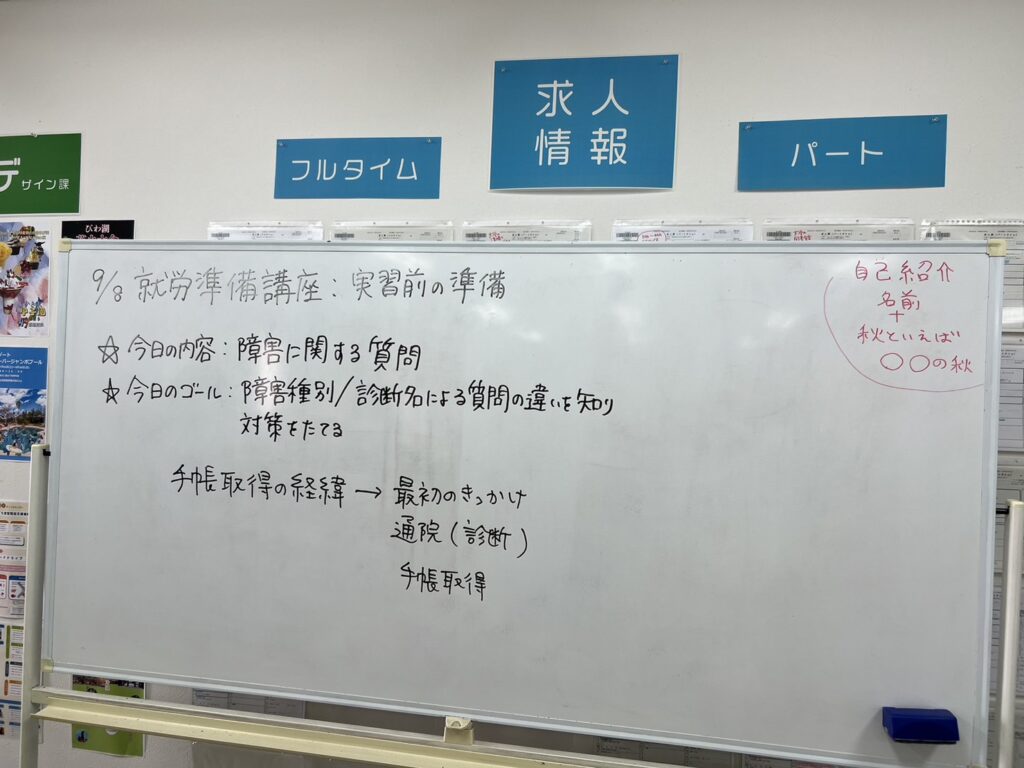 求人
情報
フルタイム
パート
デザイン課
びわ湖
9/8 就労準備講座：実習前の準備
☆今日の内容：障害に関する質問
☆今日のゴール：障害種別/診断名による質問の違いを知り
対策をたてる
手帳取得の経緯→最初のきっかけ
通院(診断)
手帳取得
自己紹介
名前
+
秋といえば
○○の秋